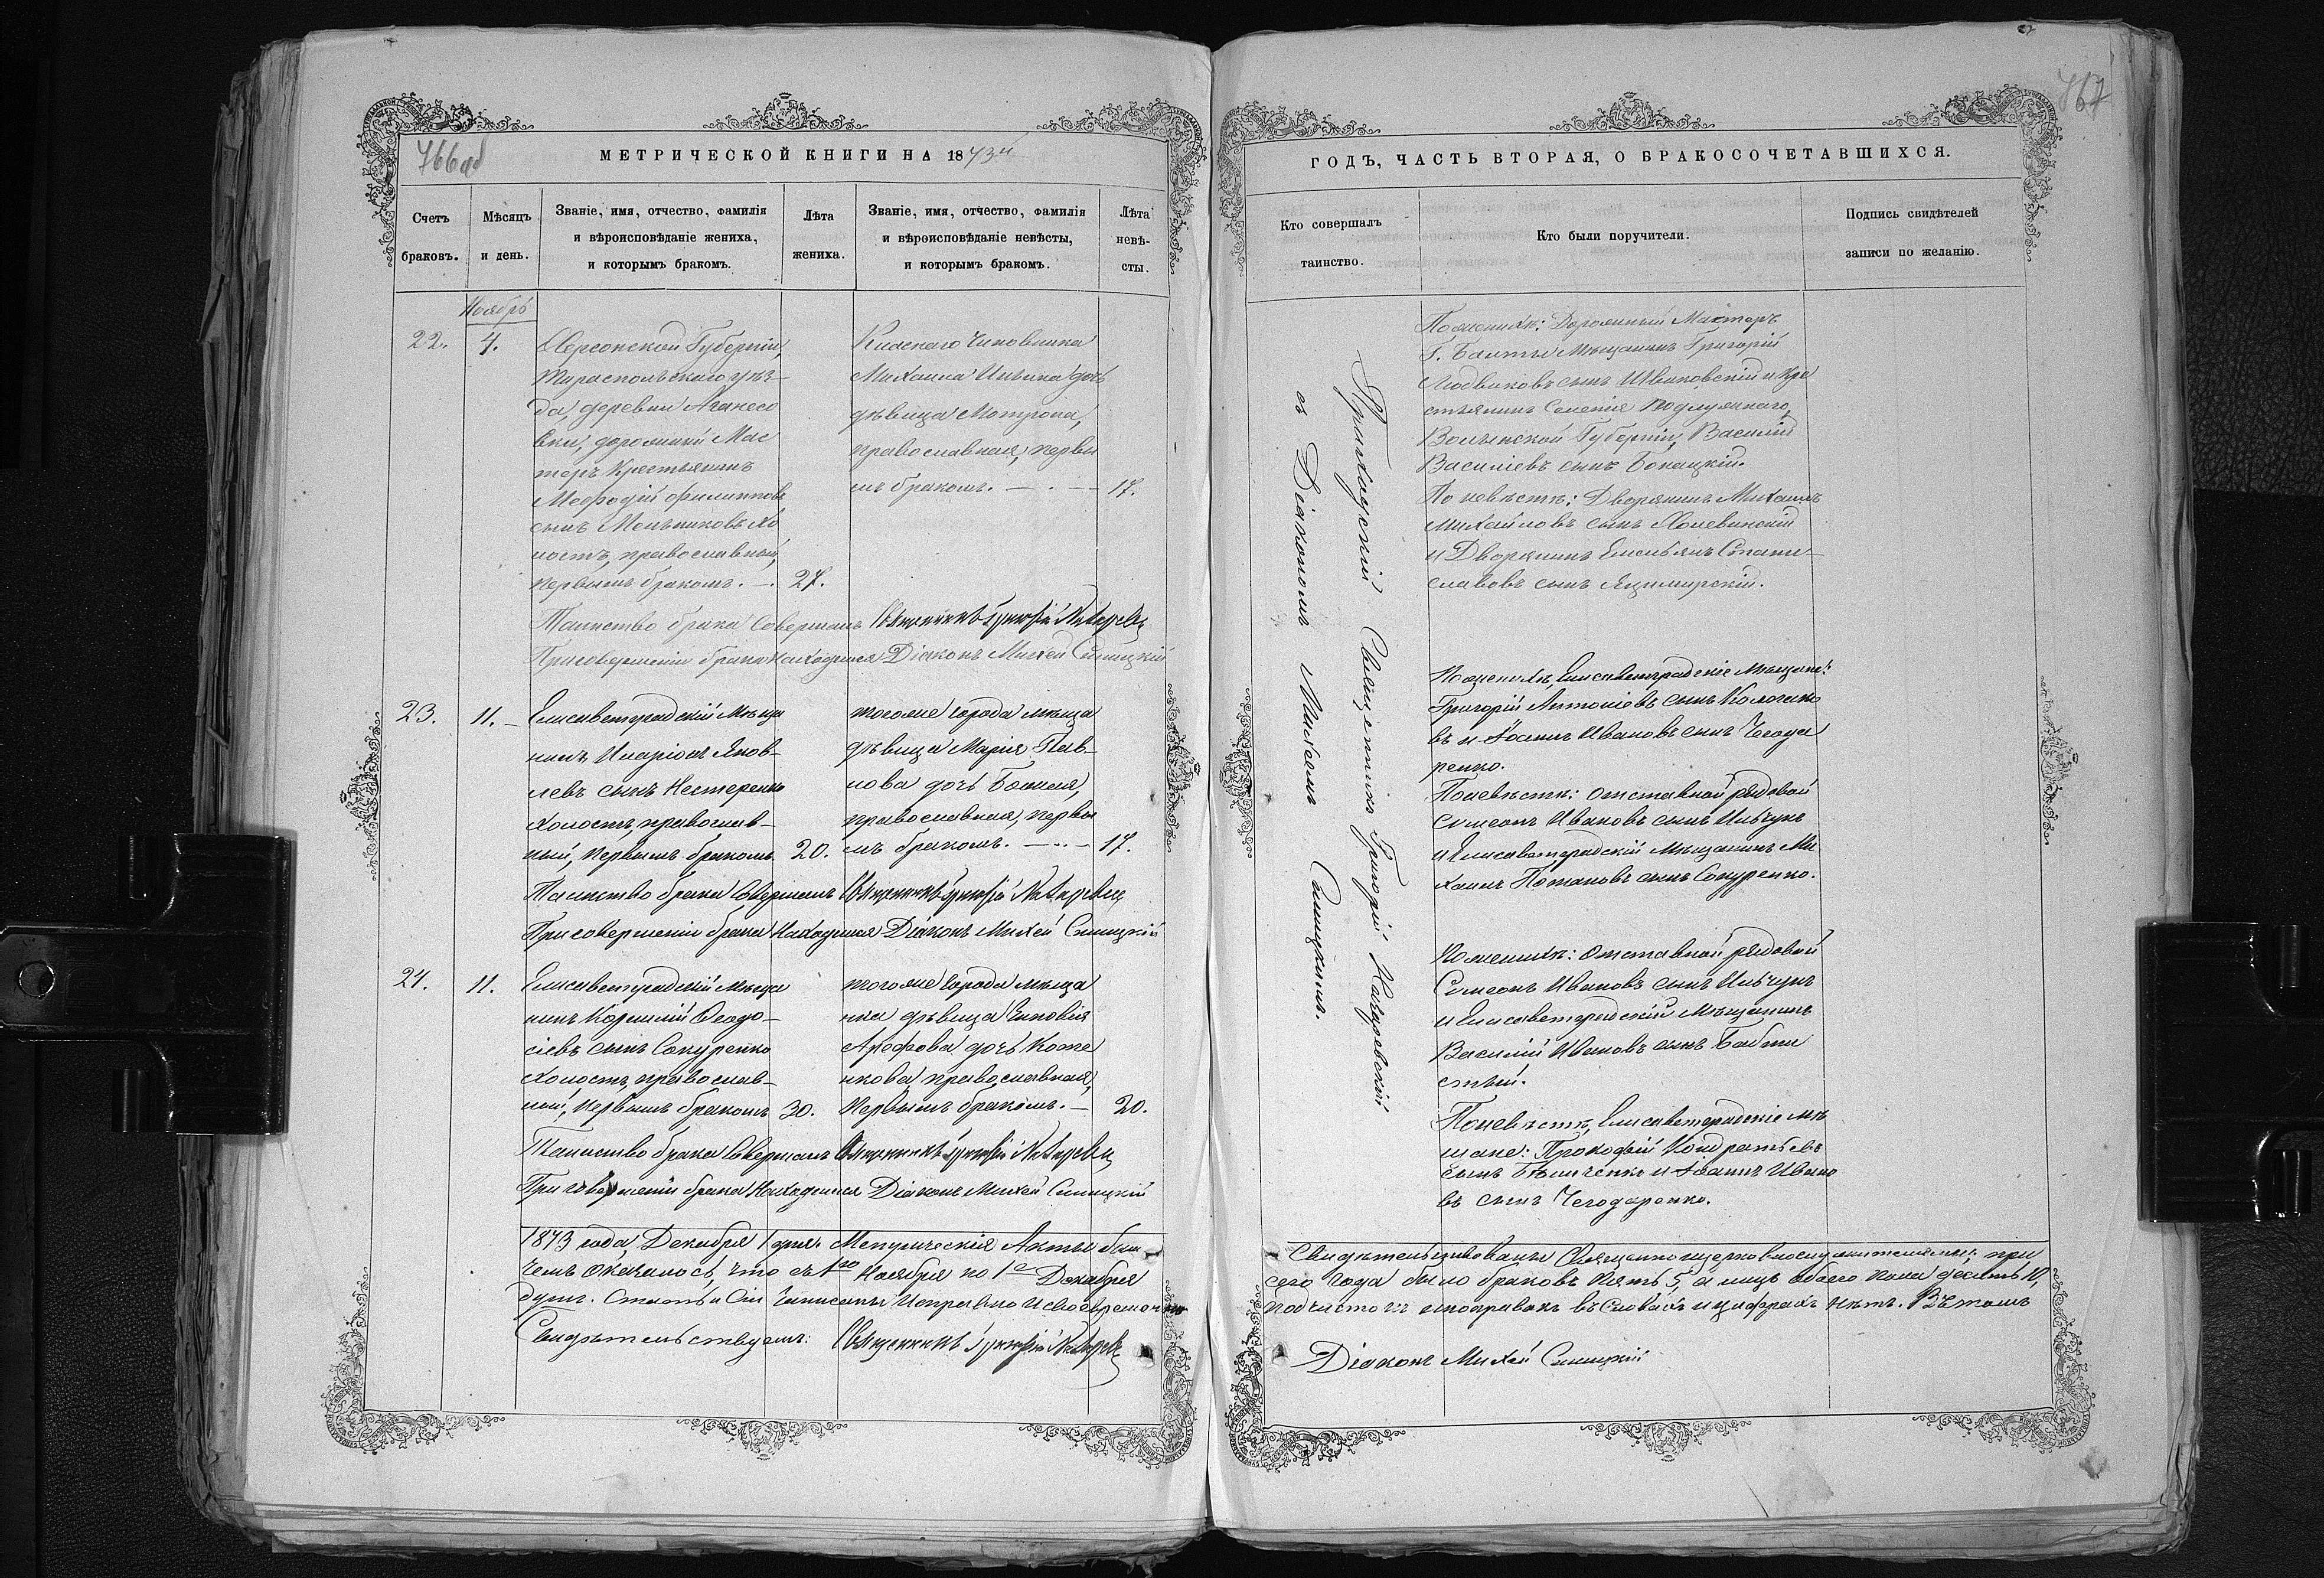 766об
МЕТРИЧЕСКОЙ КНИГИ НА 1873й
Счетъ браковъ.
Мѣсяцъ и день.
Званіе, имя, отчество, фамилія
и вѣроисповѣданіе жениха,
и которымъ бракомъ.
Лѣта
жениха.
Званіе, имя, отчество, фамилія
и вѣроисповѣданіе невѣсты,
и которымъ бракомъ.
Лѣта
невѣ-
сты.
Ноябрь
22.
4.
Херсонской Губерніи,
Тираспольскаго уѣз-
да, деревни
вки, дорожный Мас
теръ Крестьянинъ
Меѳодій Филипповъ
сынъ Мельниковъ хо
лостъ, православный,
первымъ бракомъ. -.
27.
Чиновника
Михаила Ильина дочь
дѣвица Мотрона,
православная, первы
мъ бракомъ. - . -
17.
Таинство брака Совершалъ Священникъ Григорій
При совершеніи брака находился Діаконъ Михей Синицкій
23.
11. -
Елисаветградскій Мѣща
нинъ Иларіонъ Яков-
левъ сынъ Нестеренко
холостъ, православ-
ный, первымъ бракомъ
20.
тогоже города мѣща
дѣвица Марія Пав-
лова дочь
православная, первы
мъ бракомъ. - .. -
17.
Таинство брака Совершалъ Священникъ Григорій
При совершеніи брака Находился Діаконъ Михей Синицкій
24.
11.
Елисаветградскій Мѣща
нинъ Корнилій Ѳеодо-
сіевъ сынъ Сокуренко
холостъ, православ-
ный, первымъ бракомъ
30.
тогоже города мѣща
нка дѣвица
дочь Коже
кова православная,
первымъ бракомъ. -
20.
Таинство брака Совершалъ Священникъ Григорій
При совершеніи брака Находился Діаконъ Михей Синицкій
1873 года, Декабря 1 дня. Метрическія Акты
чемъ оказалось, что съ 1го Ноября по 1е Декабря
душъ. Статьи Сіи Записаны Исправно и своевременно
Свидѣтельствуемъ: Священникъ Григорій
767
ГОДЪ, ЧАСТЬ ВТОРАЯ, О БРАКОСОЧЕТАВШИХСЯ.
Кто совершалъ
таинство.
Кто были поручители.
Подпись свидѣтелей
записи по желанію.
Приходскій Священникъ Григорій
съ Діакономъ Михеемъ Синицкимъ.
По женихѣ: Дорожный Мастеръ
Г. Балты Мѣщанинъ Григорій
сынъ и Кре
стьянинъ Селенія
Волынской Губерніи, Василій
Василіевъ сынъ
По невѣстѣ: Дворянинъ Михаилъ
Михайловъ сынъ
и Дворянинъ Емельянъ Стани-
славовъ сынъ Яцимирскій.
По женихѣ, Елисаветградскіе Мѣщане:
Григорій Антоніевъ сынъ
въ и Іоаннъ Ивановъ сынъ Чегода
ренко.
По невѣстѣ: отставной рядовой
Симеонъ Ивановъ сынъ Ильчукъ
и Елисаветградскій Мѣщанинъ Ми
хаилъ Потаповъ сынъ Сокуренко.
По женихѣ: отставной рядовой
Симеонъ Ивановъ сынъ Ильчукъ
и Елисаветградскій Мѣщанинъ
Василій Ивановъ сынъ
По невѣстѣ, Елисаветградскіе мѣ
щане: Прокофій Кондратьевъ
сынъ и Іоаннъ Ивано
въ сынъ Чегодаренко.
Свидѣтельствованы Священноцерковнослужителями: при
сего Года было браковъ пять 5, а лицъ обоего пола десять 10,
подчистокъ и поправокъ въ словахъ и цифрахъ нѣтъ. Въ томъ
Діаконъ Михей Синицкій